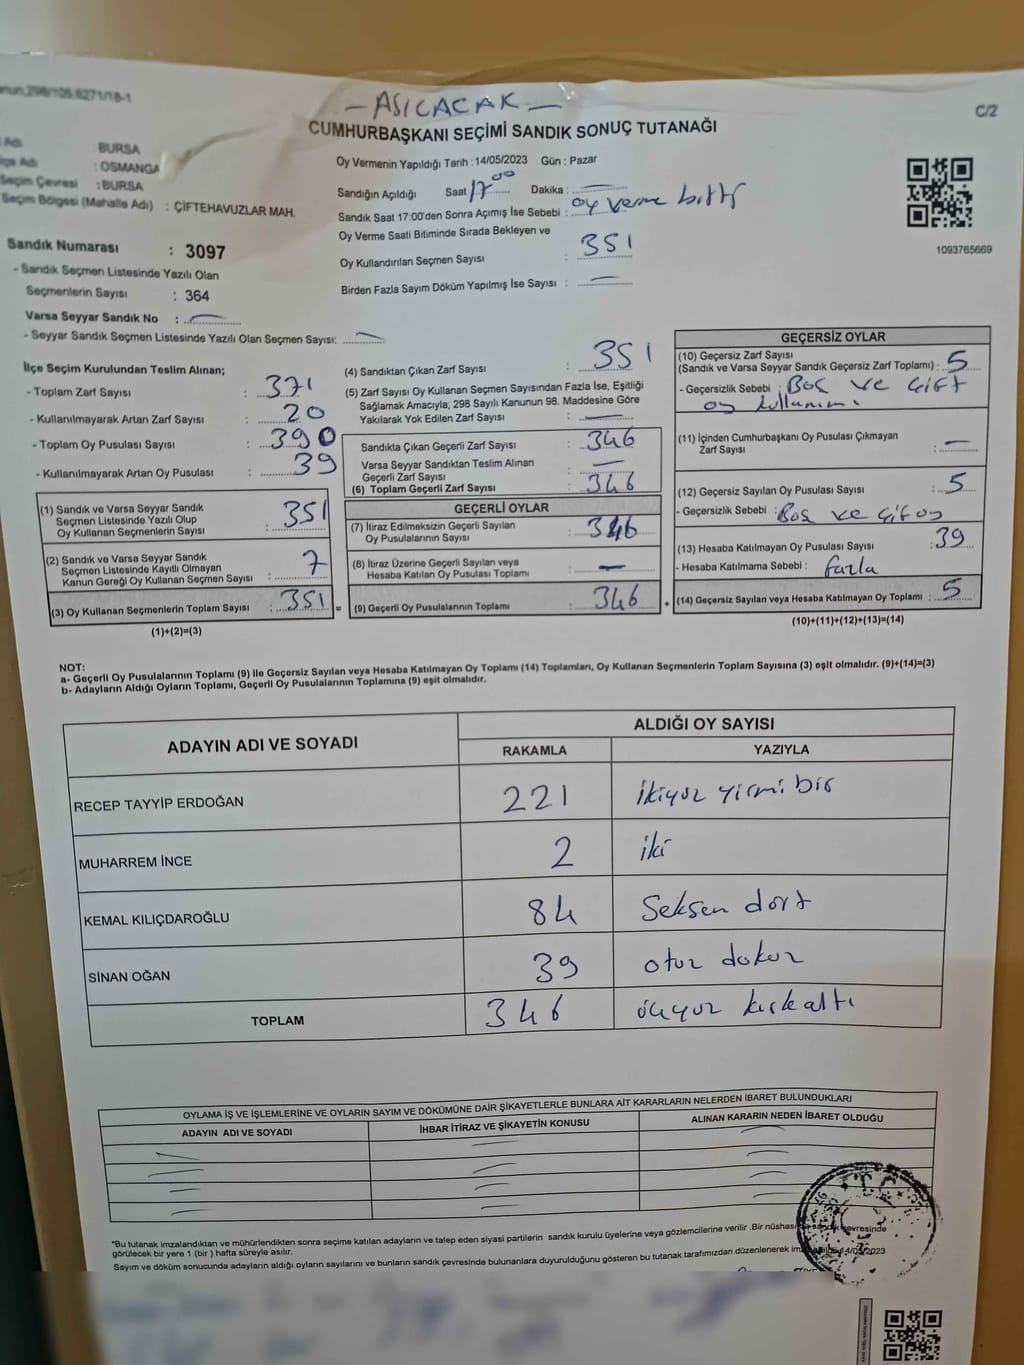 - ASILACAK -
C/2
CUMHURBAŞKANI SEÇİMİ SANDIK SONUÇ TUTANAĞI
Adı : BURSA
İlçe Adı : OSMANGA
Seçim Çevresi : BURSA
Seçim Bölgesi (Mahalle Adı) : ÇİFTEHAVUZLAR MAH.
Sandık Numarası : 3097
- Sandık Seçmen Listesinde Yazılı Olan
Seçmenlerin Sayısı : 364
Varsa Seyyar Sandık No : —
- Seyyar Sandık Seçmen Listesinde Yazılı Olan Seçmen Sayısı: —
Oy Vermenin Yapıldığı Tarih : 14/05/2023 Gün : Pazar
Sandığın Açıldığı Saat 17 00 Dakika : —
Sandık Saat 17:00'den Sonra Açımış İse Sebebi : oy verme bitti
Oy Verme Saati Bitiminde Sırada Bekleyen ve
Oy Kullandırılan Seçmen Sayısı : 351
Birden Fazla Sayım Döküm Yapılmış İse Sayısı : —
1093765669
İlçe Seçim Kurulundan Teslim Alınan;
- Toplam Zarf Sayısı : 371
- Kullanılmayarak Artan Zarf Sayısı : 20
- Toplam Oy Pusulası Sayısı : 390
- Kullanılmayarak Artan Oy Pusulası : 39
(1) Sandık ve Varsa Seyyar Sandık
Seçmen Listesinde Yazılı Olup
Oy Kullanan Seçmenlerin Sayısı : 351
(2) Sandık ve Varsa Seyyar Sandık
Seçmen Listesinde Kayıtlı Olmayan
Kanun Gereği Oy Kullanan Seçmen Sayısı : 7
(3) Oy Kullanan Seçmenlerin Toplam Sayısı : 351 =
(1)+(2)=(3)
(4) Sandıktan Çıkan Zarf Sayısı : 351
(5) Zarf Sayısı Oy Kullanan Seçmen Sayısından Fazla İse, Eşitliği
Sağlamak Amacıyla; 298 Sayılı Kanunun 98. Maddesine Göre
Yakılarak Yok Edilen Zarf Sayısı : —
Sandıkta Çıkan Geçerli Zarf Sayısı : 346
Varsa Seyyar Sandıktan Teslim Alınan
Geçerli Zarf Sayısı : —
(6) Toplam Geçerli Zarf Sayısı : 346
GEÇERLİ OYLAR
(7) İtiraz Edilmeksizin Geçerli Sayılan
Oy Pusulalarının Sayısı : 346
(8) İtiraz Üzerine Geçerli Sayılan veya
Hesaba Katılan Oy Pusulası Toplamı : —
(9) Geçerli Oy Pusulalarının Toplamı : 346 +
GEÇERSİZ OYLAR
(10) Geçersiz Zarf Sayısı
(Sandık ve Varsa Seyyar Sandık Geçersiz Zarf Toplamı) : 5
- Geçersizlik Sebebi : Boş ve Çift
oy kullanımı
(11) İçinden Cumhurbaşkanı Oy Pusulası Çıkmayan
Zarf Sayısı : —
(12) Geçersiz Sayılan Oy Pusulası Sayısı : 5
- Geçersizlik Sebebi : Boş ve çift oy
(13) Hesaba Katılmayan Oy Pusulası Sayısı : 39
- Hesaba Katılmama Sebebi : fazla
(14) Geçersiz Sayılan veya Hesaba Katılmayan Oy Toplamı : 5
(10)+(11)+(12)+(13)=(14)
NOT:
a- Geçerli Oy Pusulalarının Toplamı (9) ile Geçersiz Sayılan veya Hesaba Katılmayan Oy Toplamı (14) Toplamları, Oy Kullanan Seçmenlerin Toplam Sayısına (3) eşit olmalıdır. (9)+(14)=(3)
b- Adayların Aldığı Oyların Toplamı, Geçerli Oy Pusulalarının Toplamına (9) eşit olmalıdır.
ADAYIN ADI VE SOYADI ALDIĞI OY SAYISI
RAKAMLA YAZIYLA
RECEP TAYYİP ERDOĞAN 221 ikiyüz yirmi bir
MUHARREM İNCE 2 iki
KEMAL KILIÇDAROĞLU 84 Seksen dört
SİNAN OĞAN 39 otuz dokuz
TOPLAM 346 üçyüz kırkaltı
OYLAMA İŞ VE İŞLEMLERİNE VE OYLARIN SAYIM VE DÖKÜMÜNE DAİR ŞİKAYETLERLE BUNLARA AİT KARARLARIN NELERDEN İBARET BULUNDUKLARI
ADAYIN ADI VE SOYADI İHBAR İTİRAZ VE ŞİKAYETİN KONUSU ALINAN KARARIN NEDEN İBARET OLDUĞU
*Bu tutanak imzalandıktan ve mühürlendikten sonra seçime katılan adayların ve talep eden siyasi partilerin sandık kurulu üyelerine veya gözlemcilerine verilir .Bir nüshası sandık çevresinde
görülecek bir yere 1 (bir ) hafta süreyle asılır.
Sayım ve döküm sonucunda adayların aldığı oyların sayılarını ve bunların sandık çevresinde bulunanlara duyurulduğunu gösteren bu tutanak tarafımızdan düzenlenerek 14/05/2023